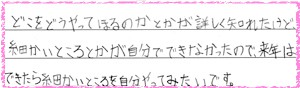 どこをどうやってほるのかとかが詳しく知れたけど、
細かいところとかが自分でできなかったので、来年は
できたら細かいところを自分やってみたいです。